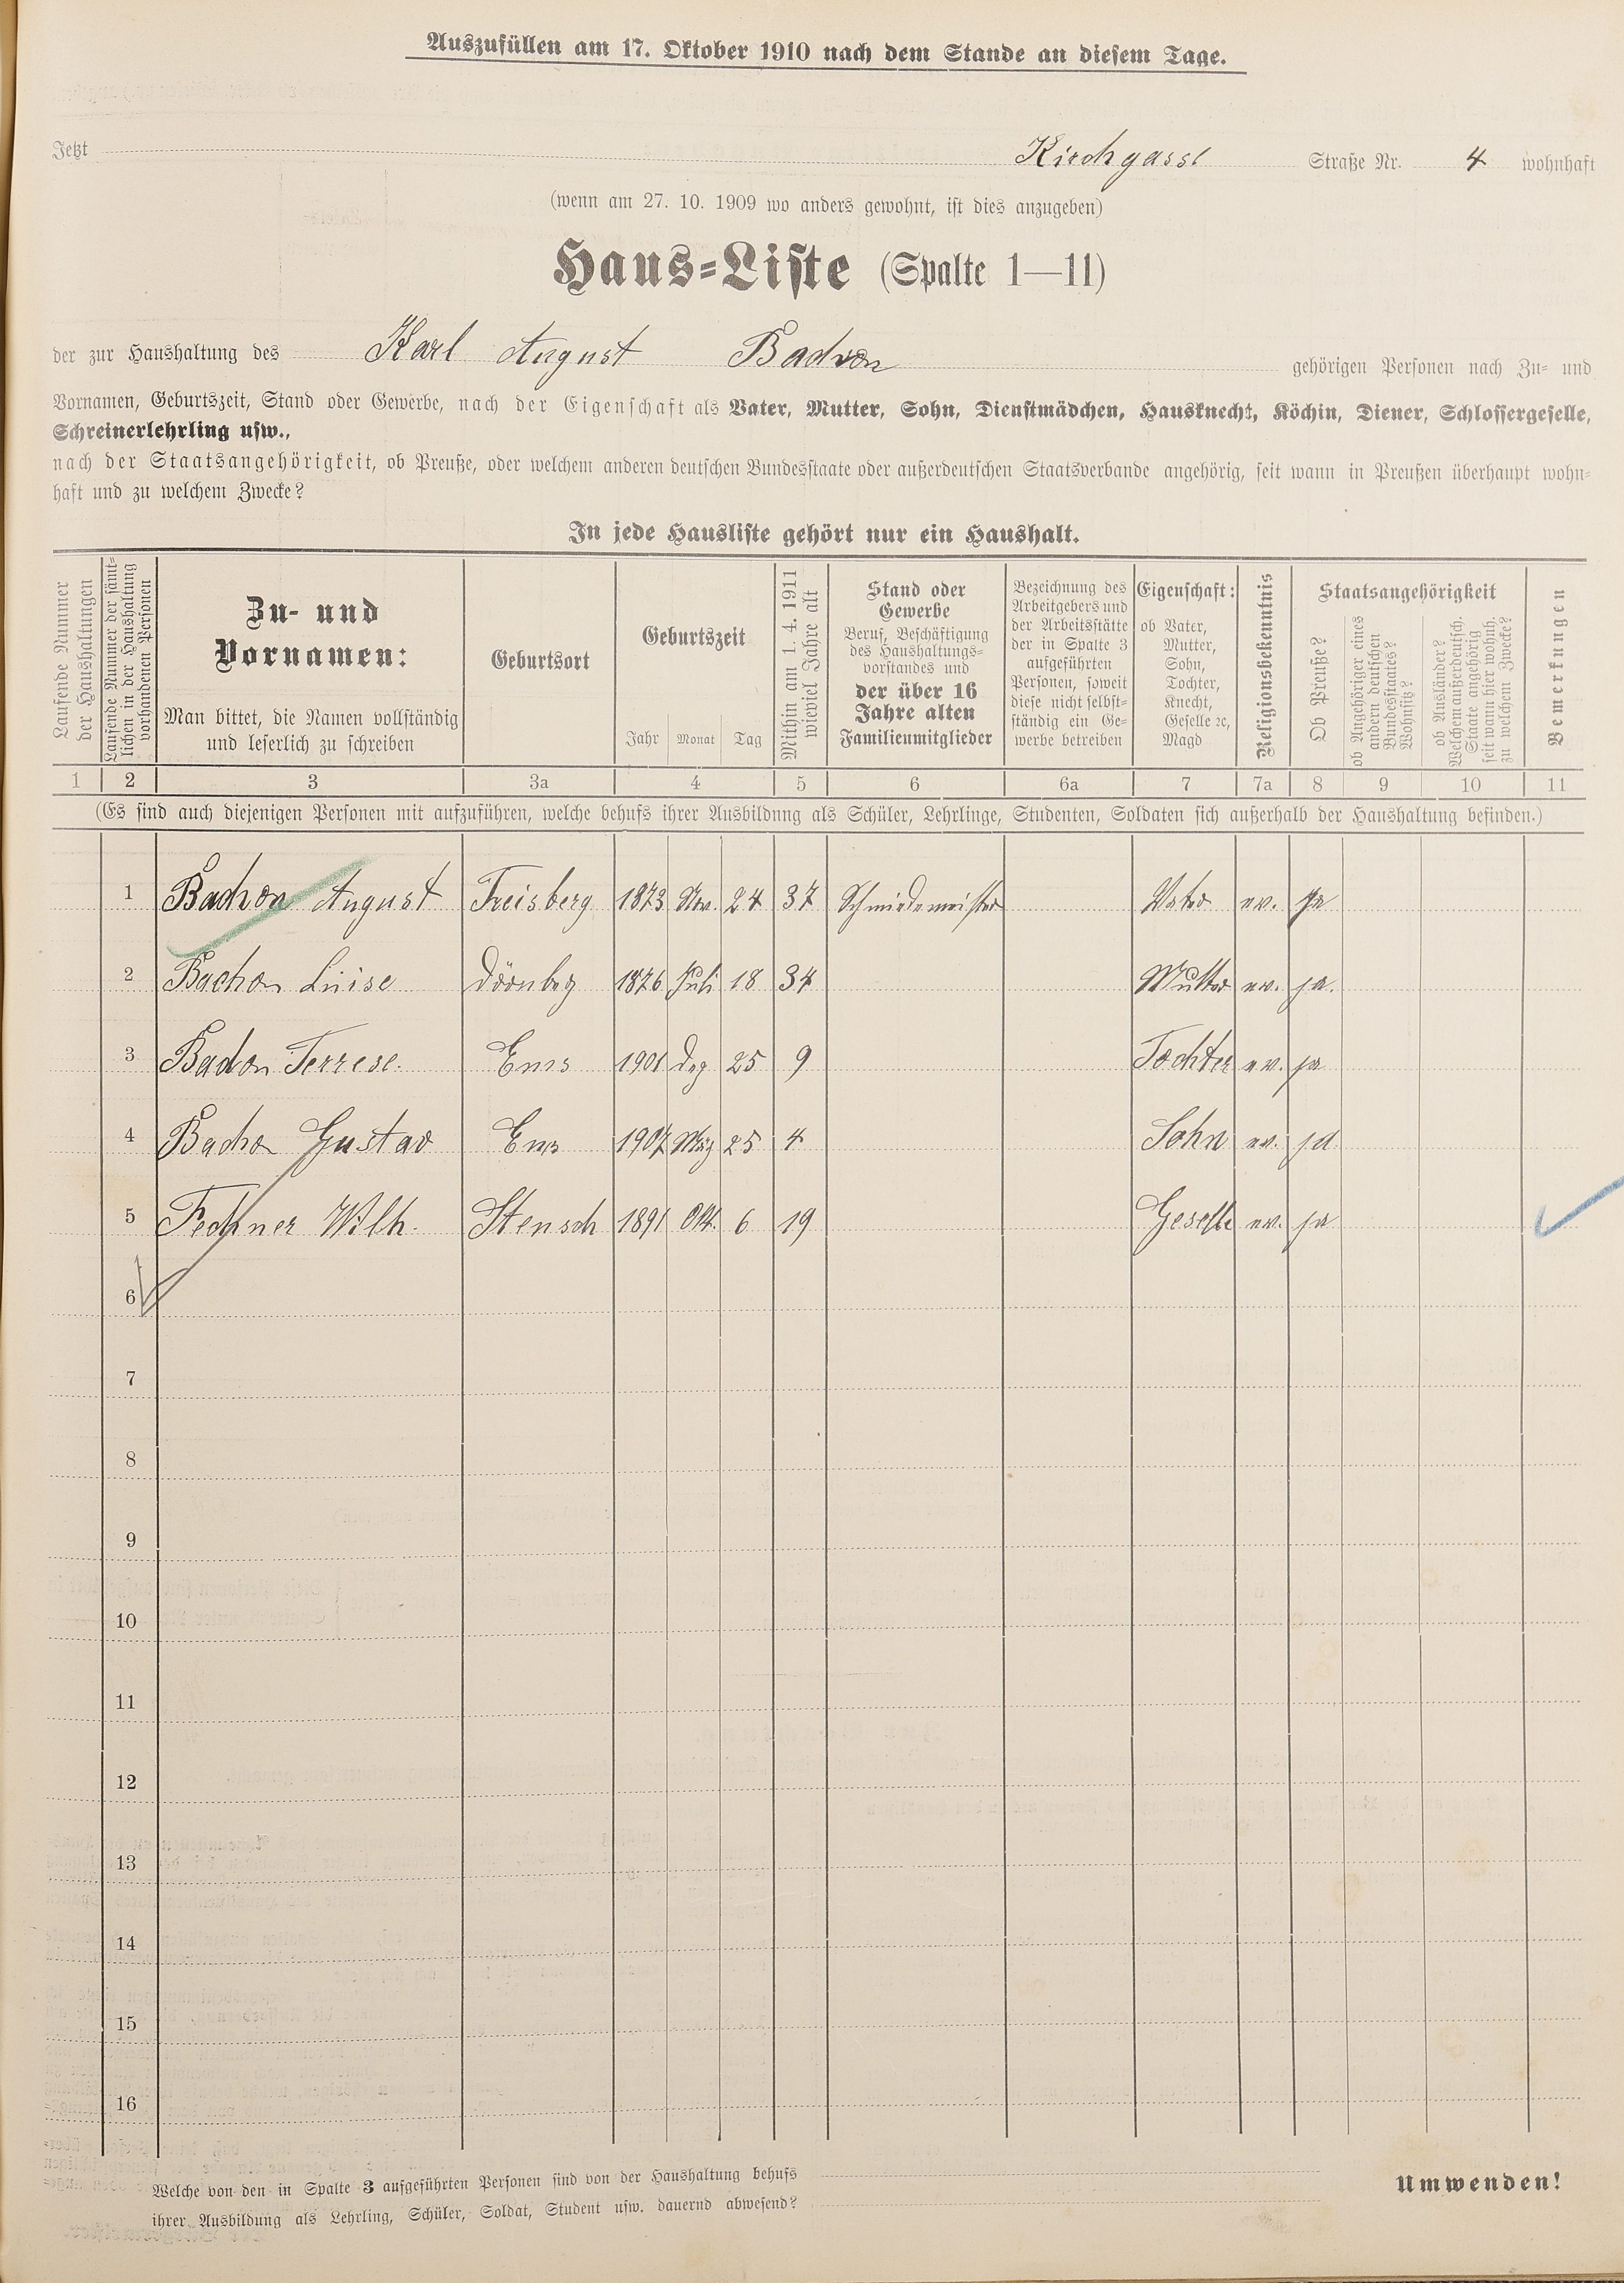 Auszufüllen am 17. Oktober 1910 nach dem Stande an diesem Tage.
Jetzt Kirchgasse Straße Nr. 4 wohnhaft
(wenn am 27. 10. 1909 wo anders gewohnt, ist dies anzugeben)
Haus-Liste (Spalte 1—11)
der zur Haushaltung des Karl August gehörigen Personen nach Zu- und
Vornamen, Geburtszeit, Stand oder Gewerbe, nach der Eigenschaft als Vater, Mutter, Sohn, Dienstmädchen, Hausknecht, Köchin, Diener, Schlossergeselle,
Schreinerlehrling usw.,
nach der Staatsangehörigkeit, ob Preuße, oder welchem anderen deutschen Bundesstaate oder außerdeutschen Staatsverbande angehörig, seit wann in Preußen überhaupt wohn-
haft und zu welchem Zwecke?
In jede Hausliste gehört nur ein Haushalt.
Laufende Nummer
der Haushaltungen
Laufende Nummer der sämt-
lichen in der Haushaltung
vorhandenen Personen
Zu- und
Vornamen:
Man bittet, die Namen vollständig
und leserlich zu schreiben
Geburtsort
Geburtszeit
Jahr Monat Tag
Mithin am 1. 4. 1911
wieviel Jahre alt
Stand oder
Gewerbe
Beruf, Beschäftigung
des Haushaltungs-
vorstandes und
der über 16
Jahre alten
Familienmitglieder
Bezeichnung des
Arbeitgebers und
der Arbeitsstätte
der in Spalte 3
aufgeführten
Personen, soweit
diese nicht selbst-
ständig ein Ge-
werbe betreiben
Eigenschaft:
ob Vater,
Mutter,
Sohn,
Tochter,
Knecht,
Geselle ꝛc,
Magd
Religionsbekenntnis
Staatsangehörigkeit
Ob Preuße?
ob Angehöriger eines
andern deutschen
Bundesstaates?
Wohnsitz?
ob Ausländer?
Welchem außerdeutsch.
Staate angehörig
seit wann hier wohnh.
zu welchem Zwecke?
Bemerkungen
1 2 3 3a 4 5 6 6a 7 7a 8 9 10 11
(Es sind auch diejenigen Personen mit aufzuführen, welche behufs ihrer Ausbildung als Schüler, Lehrlinge, Studenten, Soldaten sich außerhalb der Haushaltung befinden.)
1 August 1873 Nov. 24 37 Schmiedemeister Vater ev. ja
2 Luise Dörnberg 1876 Juli 18 34 Mutter ev. ja.
3 Terrese. Ems 1901 Dez 25 9 Tochter ev. ja
4 Gustav Ems 1907 März 25 4 Sohn ev. ja
5 Fechner Wilh. Stensch 1891 Okt. 6 19 Geselle ev. ja
6
7
8
9
10
11
12
13
14
15
16
Welche von den in Spalte 3 aufgeführten Personen sind von der Haushaltung behufs
ihrer Ausbildung als Lehrling, Schüler, Soldat, Student usw. dauernd abwesend?
Umwenden!